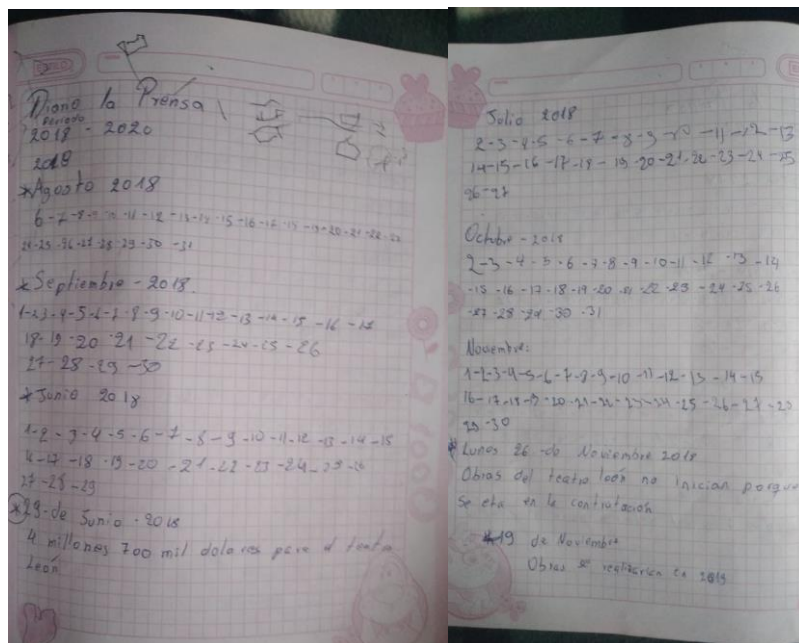 Diario la Prensa
Periodo
2018 - 2020
2018
*Agosto 2018
6-7-8-9-10-11-12-13-14-15-16-17-18-19-20-21-22-23
24-25-26-27-28-29-30-31
*Septiembre - 2018.
1-2-3-4-5-6-7-8-9-10-11-12-13-14-15-16-17
18-19-20-21-22-23-24-25-26
27-28-29-30
*Junio 2018
1-2-3-4-5-6-7-8-9-10-11-12-13-14-15
-17-18-19-20-21-22-23-24-25-26
27-28-29
*29-de Junio-2018
4 millones 700 mil dolares para el teatro
León
Julio 2018
2-3-4-5-6-7-8-9-10-11-12-13
14-15-16-17-18-19-20-21-22-23-24-25
26-27
Octubre - 2018
2-3-4-5-6-7-8-9-10-11-12-13-14
-15-16-17-18-19-20-21-22-23-24-25-26
-27-28-29-30-31
Noviembre:
1-2-3-4-5-6-7-8-9-10-11-12-13-14-15
16-17-18-19-20-21-22-23-24-25-26-27-28
29-30
Lunes 26 de Noviembre 2018
Obras del teatro león no inician porque
se eta en la contratación
19 de Noviembre
Obras se realizarian en 2019